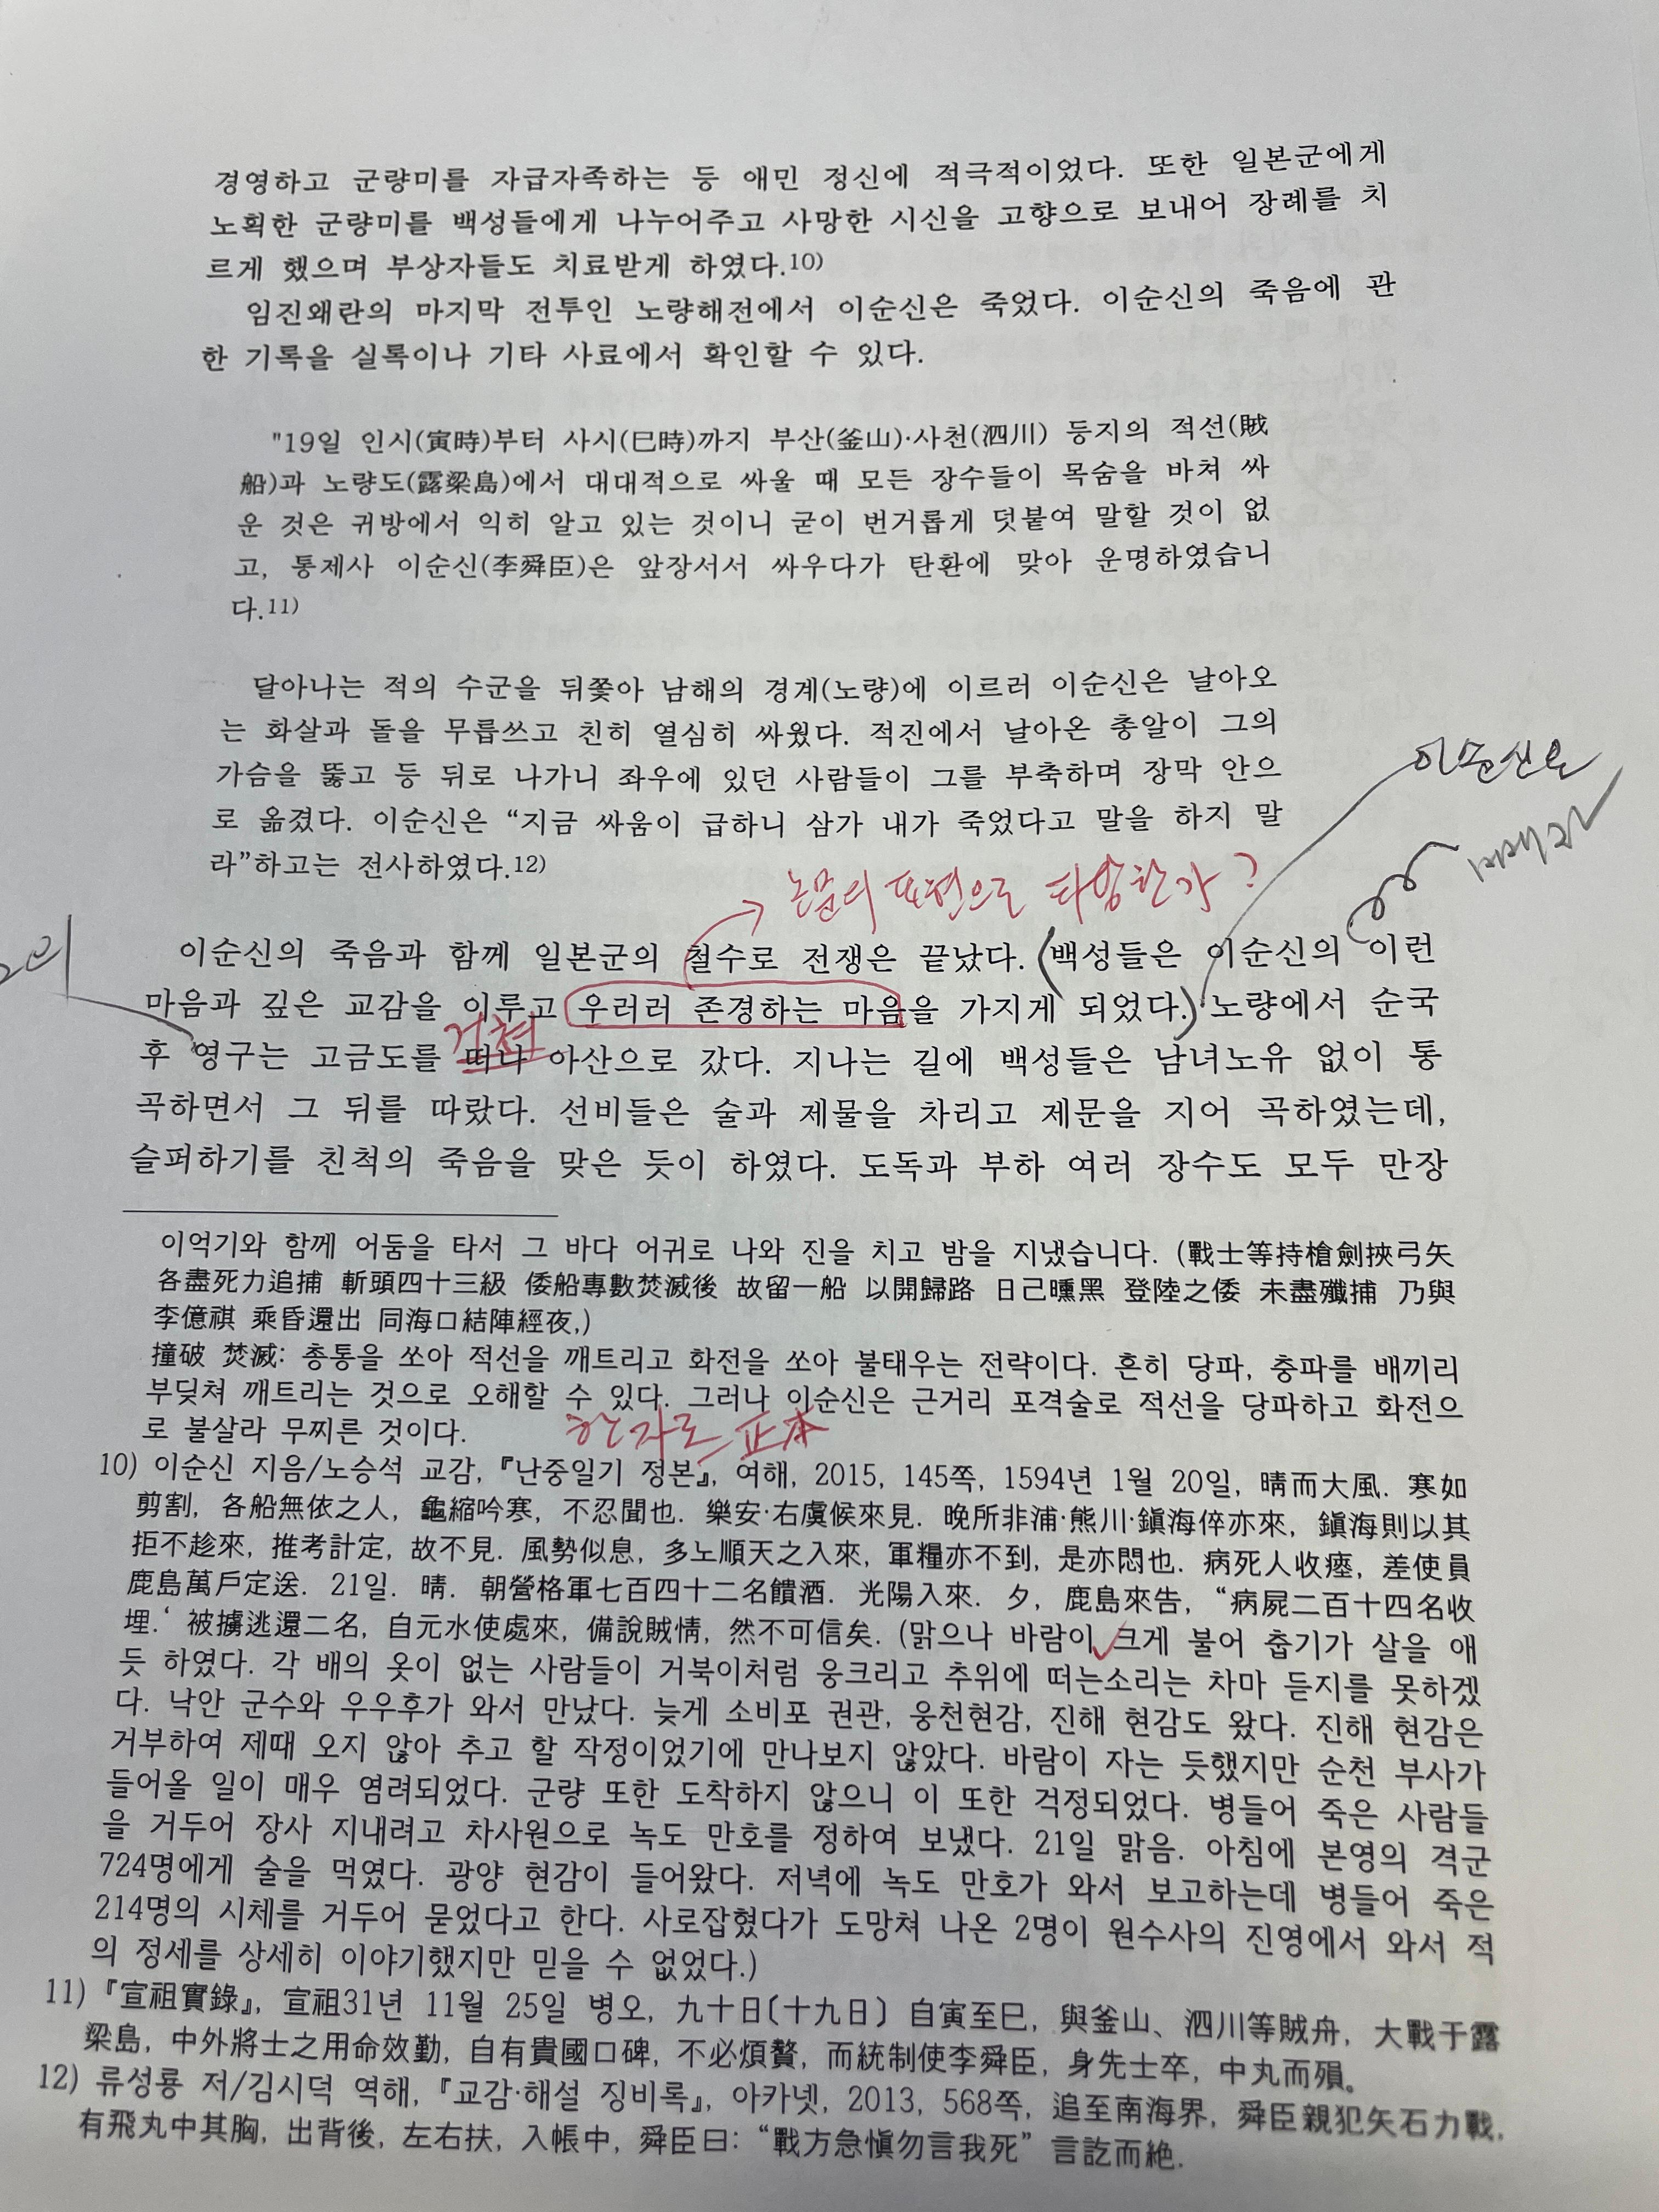 경영하고 군량미를 자급자족하는 등 애민 정신에 적극적이었다. 또한 일본군에게
노획한 군량미를 백성들에게 나누어주고 사망한 시신을 고향으로 보내어 장례를 치
르게 했으며 부상자들도 치료받게 하였다.10)
임진왜란의 마지막 전투인 노량해전에서 이순신은 죽었다. 이순신의 죽음에 관
한 기록을 실록이나 기타 사료에서 확인할 수 있다.
"19일 인시(寅時)부터 사시(巳時)까지 부산(釜山)·사천(泗川) 등지의 적선(賊
船)과 노량도(露梁島)에서 대대적으로 싸울 때 모든 장수들이 목숨을 바쳐 싸
운 것은 귀방에서 익히 알고 있는 것이니 굳이 번거롭게 덧붙여 말할 것이 없
고, 통제사 이순신(李舜臣)은 앞장서서 싸우다가 탄환에 맞아 운명하였습니
다.11)
달아나는 적의 수군을 뒤쫓아 남해의 경계(노량)에 이르러 이순신은 날아오
는 화살과 돌을 무릅쓰고 친히 열심히 싸웠다. 적진에서 날아온 총알이 그의
가슴을 뚫고 등 뒤로 나가니 좌우에 있던 사람들이 그를 부축하며 장막 안으
로 옮겼다. 이순신은 “지금 싸움이 급하니 삼가 내가 죽었다고 말을 하지 말
라”하고는 전사하였다.12)
이순신은
논문의 표현으로 타당한가?
이순신의 죽음과 함께 일본군의 철수로 전쟁은 끝났다. (백성들은 이순신의 이런
마음과 깊은 교감을 이루고 우러러 존경하는 마음을 가지게 되었다.) 노량에서 순국
거쳐
후 영구는 고금도를 떠나 아산으로 갔다. 지나는 길에 백성들은 남녀노유 없이 통
곡하면서 그 뒤를 따랐다. 선비들은 술과 제물을 차리고 제문을 지어 곡하였는데,
슬퍼하기를 친척의 죽음을 맞은 듯이 하였다. 도독과 부하 여러 장수도 모두 만장
이억기와 함께 어둠을 타서 그 바다 어귀로 나와 진을 치고 밤을 지냈습니다. (戰士等持槍劍挾弓矢
各盡死力追捕 斬頭四十三級 倭船專數焚滅後 故留一船 以開歸路 日己曛黑 登陸之倭 未盡殲捕 乃與
李億祺 乘昏還出 同海口結陣經夜,)
撞破 焚滅: 총통을 쏘아 적선을 깨트리고 화전을 쏘아 불태우는 전략이다. 흔히 당파, 충파를 배끼리
부딪쳐 깨트리는 것으로 오해할 수 있다. 그러나 이순신은 근거리 포격술로 적선을 당파하고 화전으
로 불살라 무찌른 것이다.
한자로 正本
10) 이순신 지음/노승석 교감, 『난중일기 정본』, 여해, 2015, 145쪽, 1594년 1월 20일, 晴而大風. 寒如
剪割, 各船無依之人, 龜縮吟寒, 不忍聞也. 樂安·右虞候來見. 晩所非浦·熊川·鎭海倅亦來, 鎭海則以其
拒不趁來, 推考計定, 故不見. 風勢似息, 多노順天之入來, 軍糧亦不到, 是亦悶也. 病死人收瘞, 差使員
鹿島萬戶定送. 21일. 晴. 朝營格軍七百四十二名饋酒. 光陽入來. 夕, 鹿島來告, “病屍二百十四名收
埋.‘ 被擄逃還二名, 自元水使處來, 備說賊情, 然不可信矣. (맑으나 바람이 크게 불어 춥기가 살을 애
듯 하였다. 각 배의 옷이 없는 사람들이 거북이처럼 웅크리고 추위에 떠는소리는 차마 듣지를 못하겠
다. 낙안 군수와 우우후가 와서 만났다. 늦게 소비포 권관, 웅천현감, 진해 현감도 왔다. 진해 현감은
거부하여 제때 오지 않아 추고 할 작정이었기에 만나보지 않았다. 바람이 자는 듯했지만 순천 부사가
들어올 일이 매우 염려되었다. 군량 또한 도착하지 않으니 이 또한 걱정되었다. 병들어 죽은 사람들
을 거두어 장사 지내려고 차사원으로 녹도 만호를 정하여 보냈다. 21일 맑음. 아침에 본영의 격군
724명에게 술을 먹였다. 광양 현감이 들어왔다. 저녁에 녹도 만호가 와서 보고하는데 병들어 죽은
214명의 시체를 거두어 묻었다고 한다. 사로잡혔다가 도망쳐 나온 2명이 원수사의 진영에서 와서 적
의 정세를 상세히 이야기했지만 믿을 수 없었다.)
11) 『宣祖實錄』, 宣祖31년 11월 25일 병오, 九十日〔十九日〕 自寅至巳, 與釜山、泗川等賊舟, 大戰于露
梁島, 中外將士之用命效勤, 自有貴國口碑, 不必煩贅, 而統制使李舜臣, 身先士卒, 中丸而殞。
12) 류성룡 저/김시덕 역해, 『교감·해설 징비록』, 아카넷, 2013, 568쪽, 追至南海界, 舜臣親犯矢石力戰,
有飛丸中其胸, 出背後, 左右扶, 入帳中, 舜臣曰: “戰方急愼勿言我死” 言訖而絶.